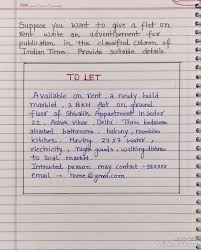 Suppose you want to give a flat on
rent write an advertisement for
publication in the classified column of
Indian Time. Provide suitable details.
TO LET
Available on rent, a newly build
marbled, 3 BKH flat on ground
floor of Shivalik Appartment in Sector
22, Ashok Vihar, Delhi. Three bedroom
attached bathrooms, balcony, modular
kitchen. Having 24x7 water,
electricity, night guards, walking distance
to local market.
Intrusted person may contact - 98xxxx
email - home@gmail.com